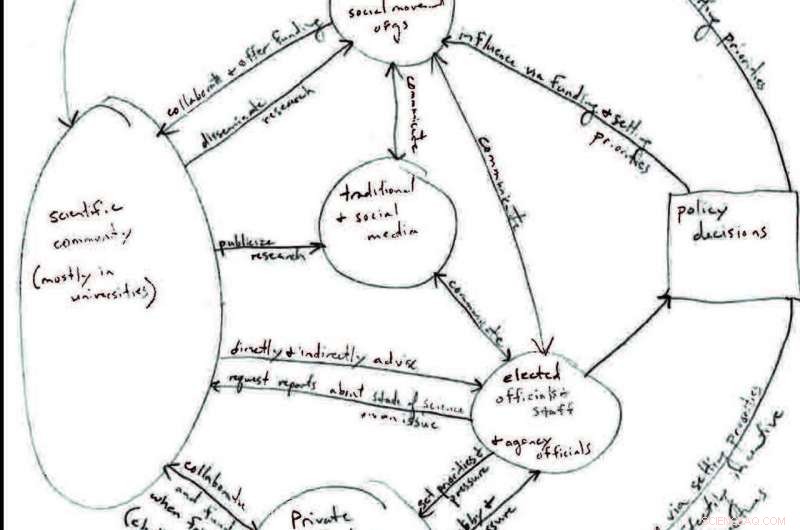 social movement
orgs
collaborate & offer funding
disseminate research
communicate
influence via funding & setting
priorities
priorities
communicate
traditional
& social
media
policy
decisions
scientific
community
(mostly in
universities)
publicize
research
communicate
directly & indirectly advise
request reports about state of science
on an issue
elected
officials &
staff
& agency
officials
set priorities &
pressure
collaborate
and fund
when
Private
via setting priorities
incentive